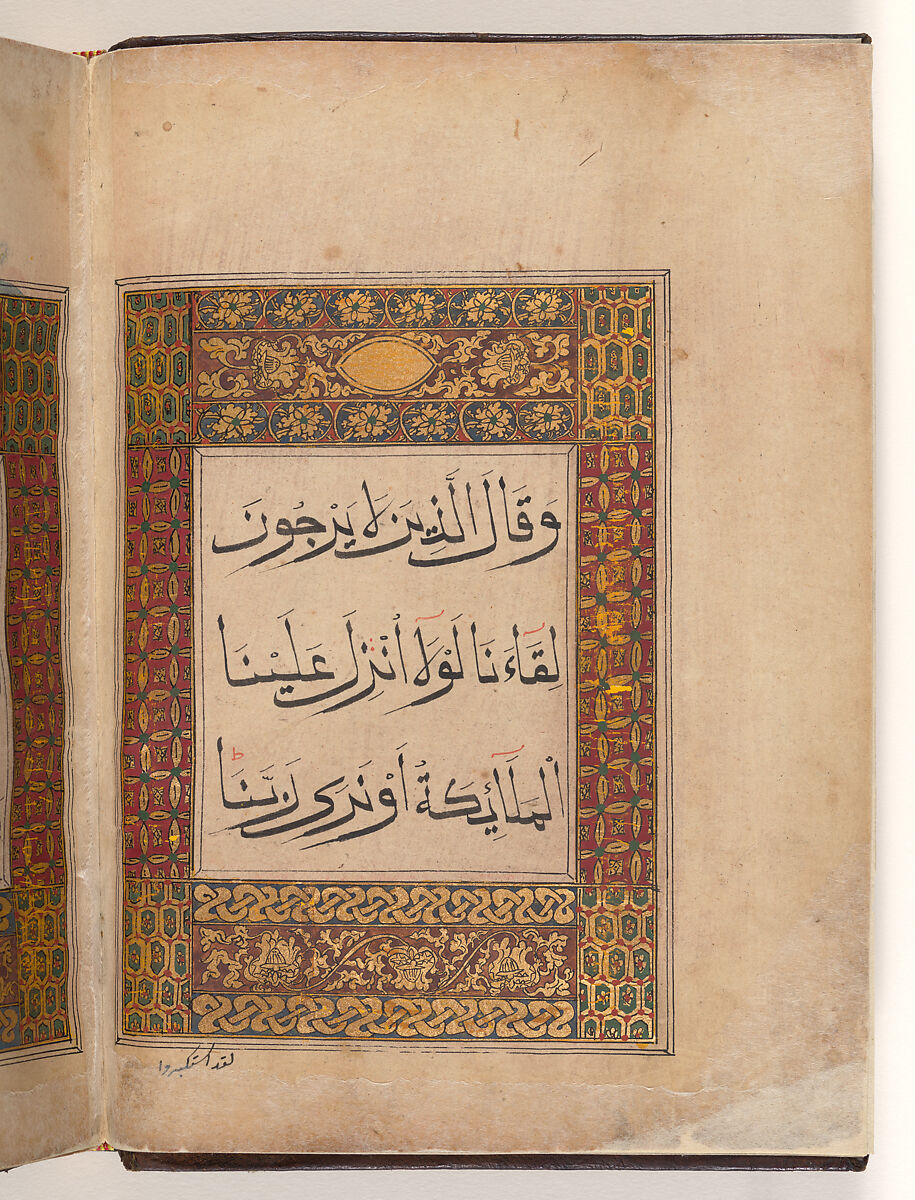 وَقَالَ الَّذِينَ لَا يَرْجُونَ
لِقَآءَنَا لَوْلَآ اُنْزِلَ عَلَيْنَا
الْمَلَآئِكَةُ اَوْ نَرٰى رَبَّنَا ط
لقد استكبروا